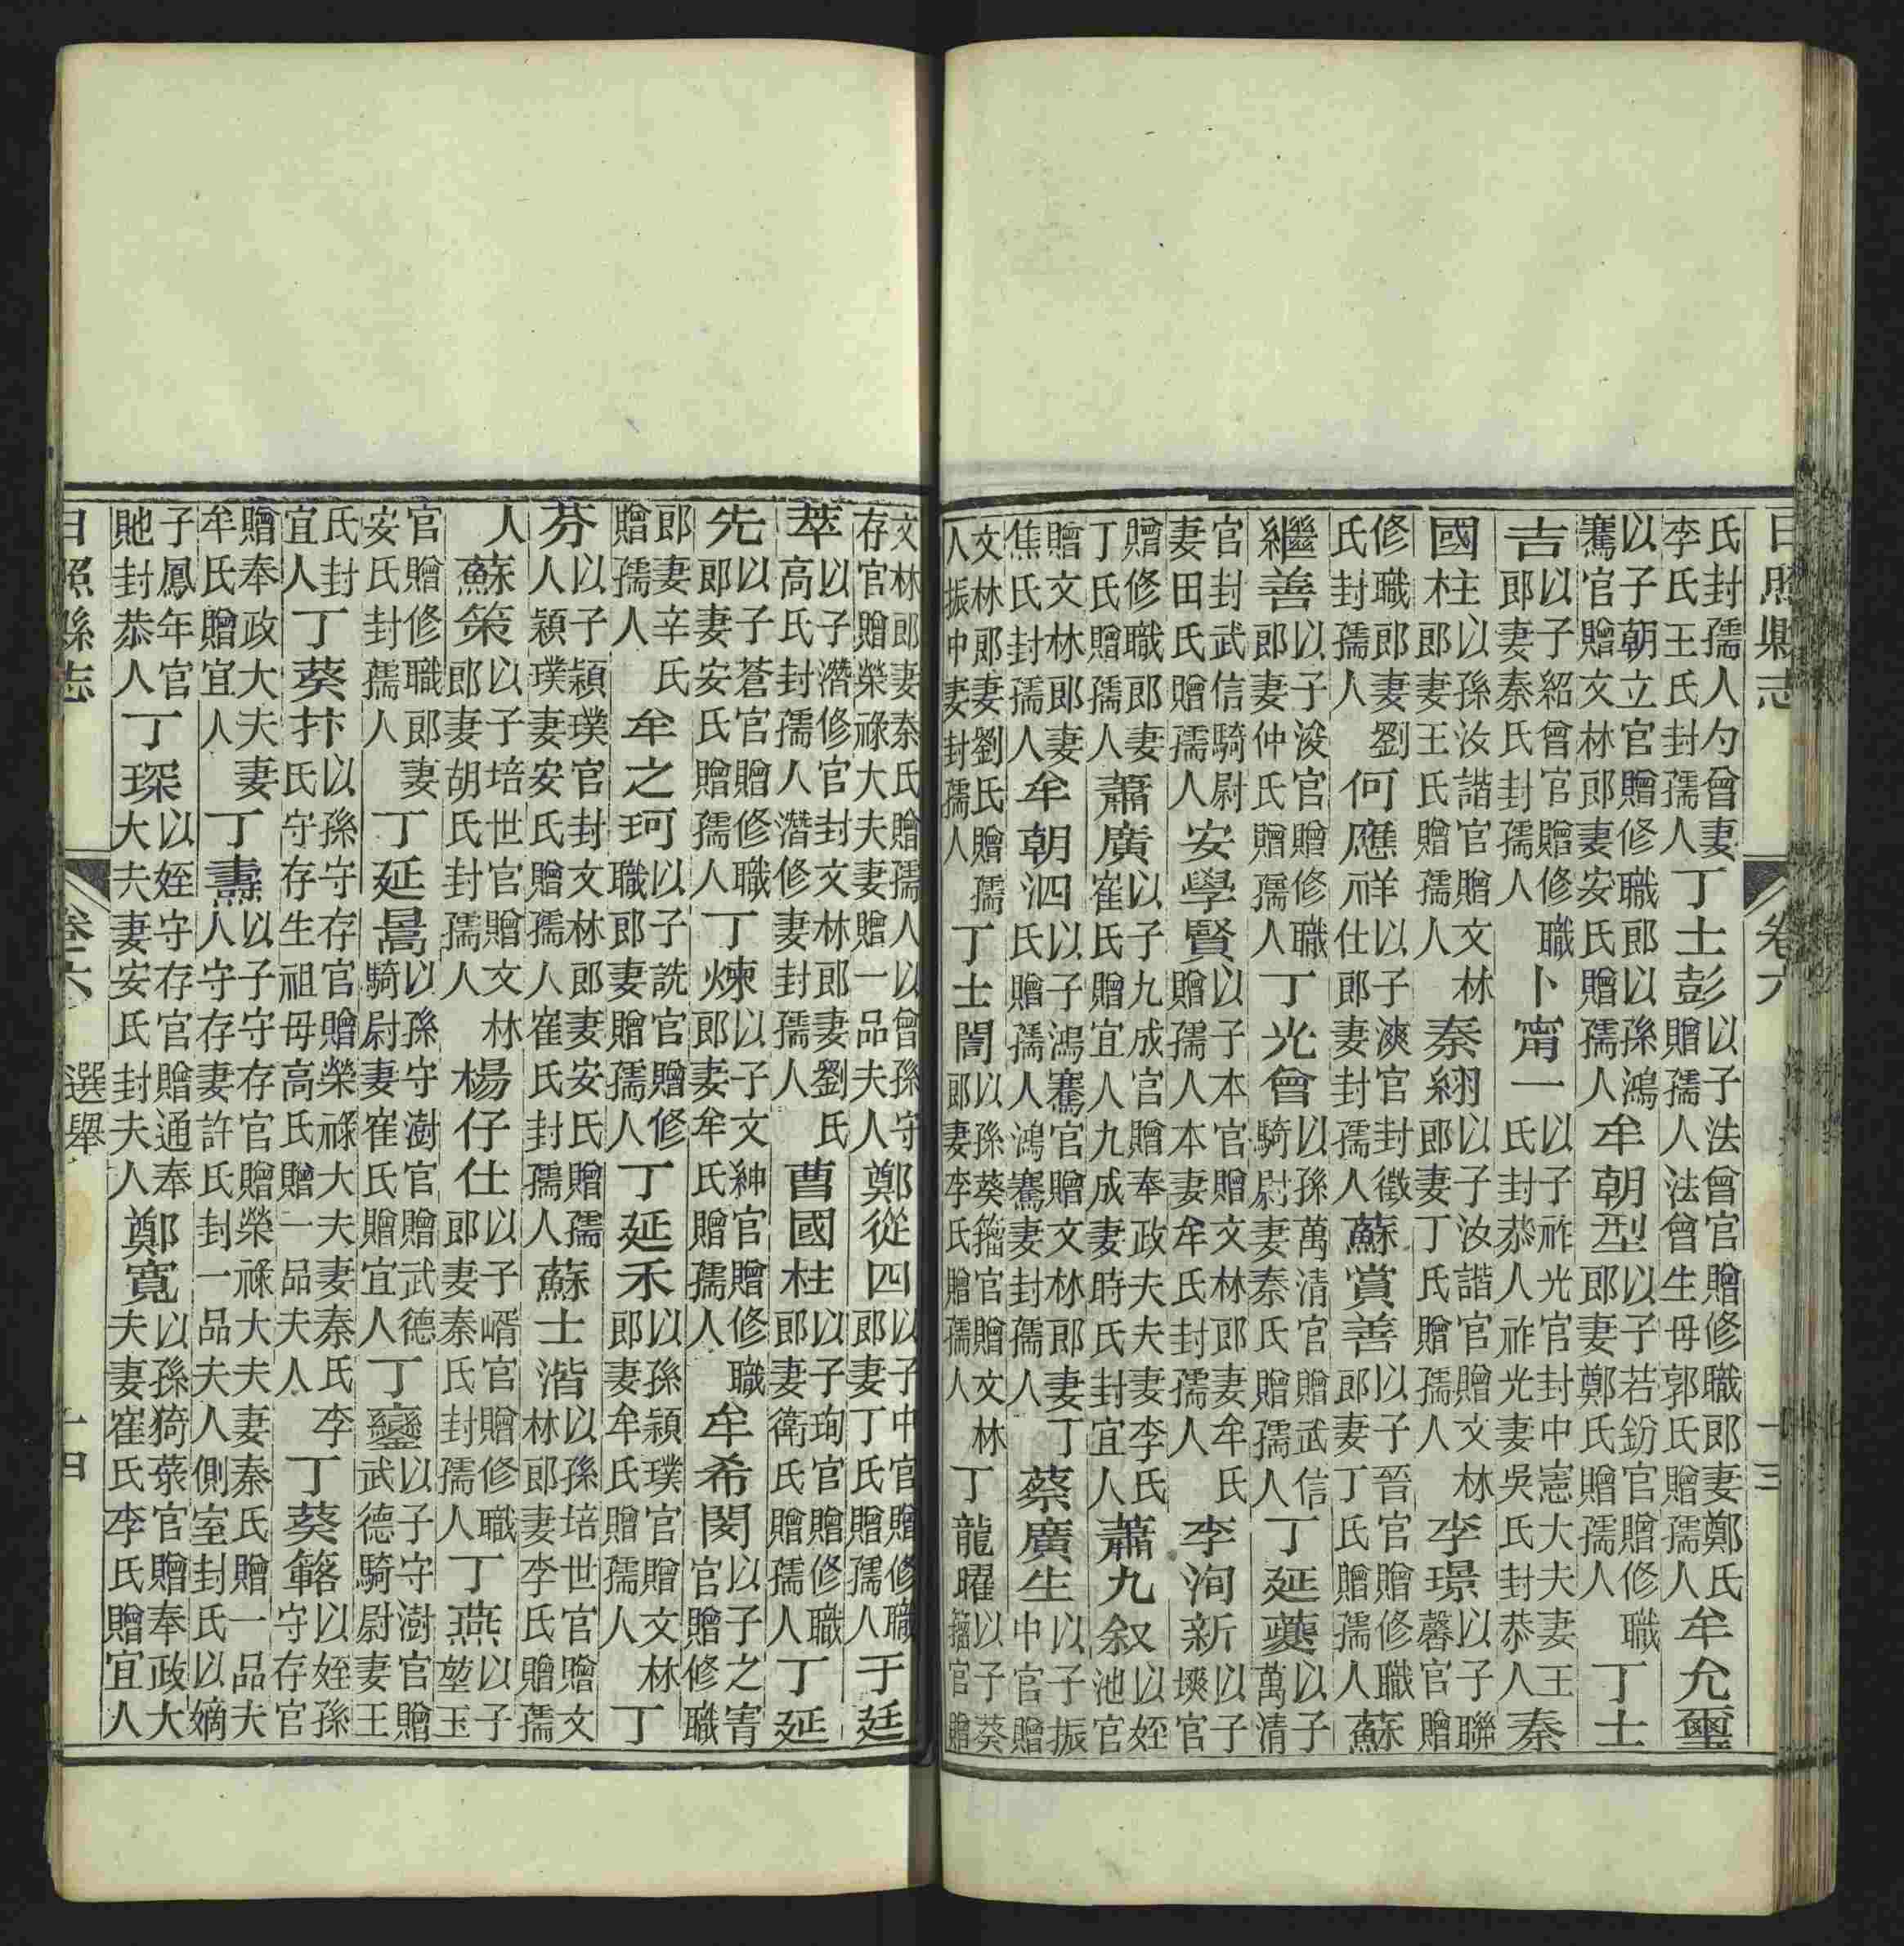 日照縣志 卷六 十三
氏封孺人勺曾妻李氏王氏封孺人丁士彭以子法曾官贈修職郎妻鄭氏贈孺人法曾生母郭氏贈孺人牟允璽
以子朝立官贈修職郎以孫鴻騫官贈文林郎妻安氏贈孺人牟朝型以子若鈖官贈修職郎妻鄭氏贈孺人丁士
吉以子紹曾官贈修職郎妻秦氏封孺人卜甯一以子祚光官封中憲大夫妻王氏封恭人祚光妻吳氏封恭人秦
國柱以孫汝諧官贈文林郎妻王氏贈孺人秦翊以子汝諧官贈文林郎妻丁氏贈孺人李璟以子聯馨官贈
修職郎妻劉氏封孺人何應祥以子漺官封徵仕郎妻封孺人蘇賞善以子晉官贈修職郎妻丁氏贈孺人蘇
繼善以子浚官贈修職郎妻仲氏贈孺人丁光曾以孫萬清官贈武信騎尉妻秦氏贈孺人丁延夔以子萬清
官封武信騎尉妻田氏贈孺人安學賢以子本官贈文林郎妻牟氏贈孺人本妻牟氏封孺人李洵新以子官
贈修職郎妻丁氏贈孺人蕭廣以子九成官贈奉政夫夫妻李氏崔氏贈宜人九成妻時氏封宜人蕭九叙以姪池官
贈文林郎妻焦氏封孺人牟朝泗以子鴻騫官贈文林郎妻丁氏贈孺人鴻騫妻封孺人蔡廣生以子振中官贈
文林郎妻劉氏贈孺人振中妻封孺人丁士誾以孫葵籀官贈文林郎妻李氏贈孺人丁龍曜以子葵籀官贈
文林郎妻秦氏贈孺人以曾孫守存官贈榮祿大夫妻贈一品夫人鄭從四以子中官贈修職郎妻丁氏贈孺人于廷
萃以子潛修官封文林郎妻劉氏高氏封孺人潛修妻封孺人曹國柱以子珣官贈修職郎妻衛氏贈孺人丁延
先以子蒼官贈修職郎妻安氏贈孺人丁煉以子文紳官贈修職郎妻牟氏贈孺人牟希閔以子之官贈修職
郎妻辛氏贈孺人牟之珂以子詵官贈修職郎妻贈孺人丁延禾以孫穎璞官贈文林郎妻牟氏贈孺人丁
芬以子穎璞官封文林郎妻安氏贈孺人穎璞妻安氏贈孺人崔氏封孺人蘇士湝以孫培世官贈文林郎妻李氏贈孺
人蘇策以子培世官贈文林郎妻胡氏封孺人楊仔仕以子官贈修職郎妻秦氏封孺人丁燕以子堃玉
官贈修職郎妻安氏封孺人丁延暠以孫守澍官贈武德騎尉妻崔氏贈宜人丁鑾以子守澍官贈武德騎尉妻王
氏封宜人丁葵抃以孫守存官贈榮祿大夫妻秦氏李氏守存生祖母高氏贈一品夫人丁葵簵以姪孫守存官
贈奉政大夫妻牟氏贈宜人丁壽以子守存官贈榮祿大夫妻秦氏贈一品夫人守存妻許氏封一品夫人側室封氏以嫡
子鳳年官貤封恭人丁琛以姪守存官贈通奉大夫妻安氏封夫人鄭寬以孫猗菉官贈奉政大夫妻崔氏李氏贈宜人
日照縣志 卷六 選舉 十四